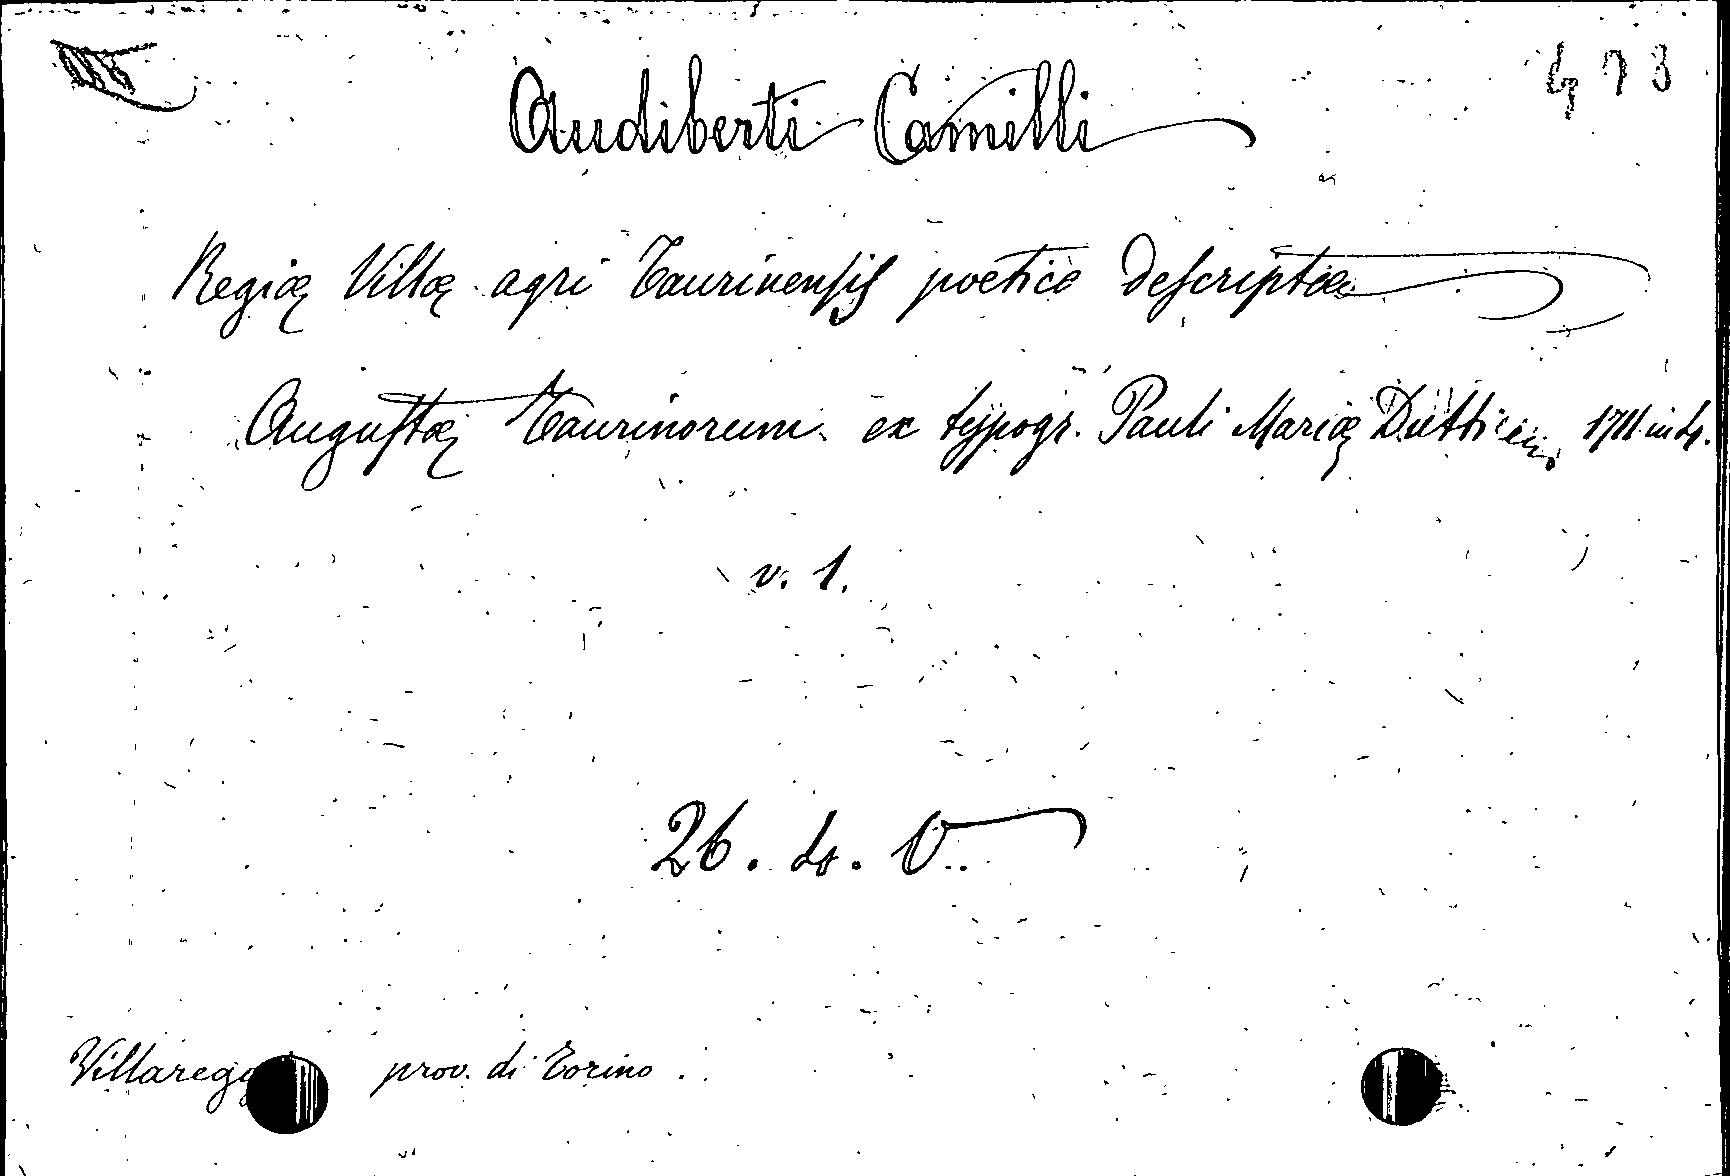 473
Audiberti Camilli
Regiæ Villæ agri Taurinensis poetice descriptæ
Augustæ Taurinorum ex typogr. Pauli Mariæ 1711 in 4.
v. 1.
26. 4. V
prov. di Torino.